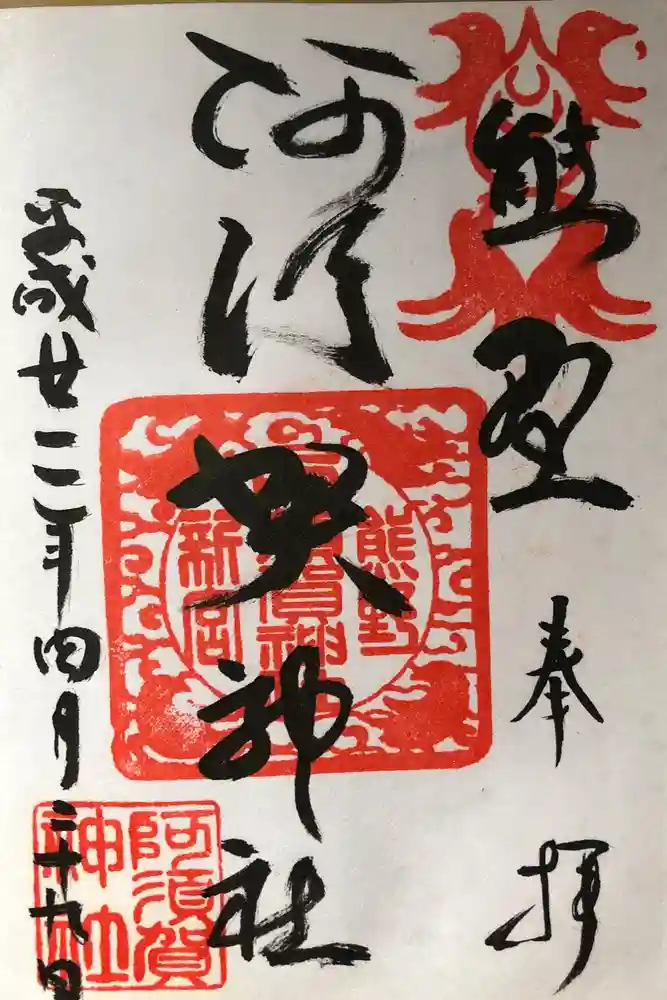 熊野
奉拝
阿須賀神社
熊野
阿須賀神社
新宮
平成廿二年四月二十九日
阿須賀
神社